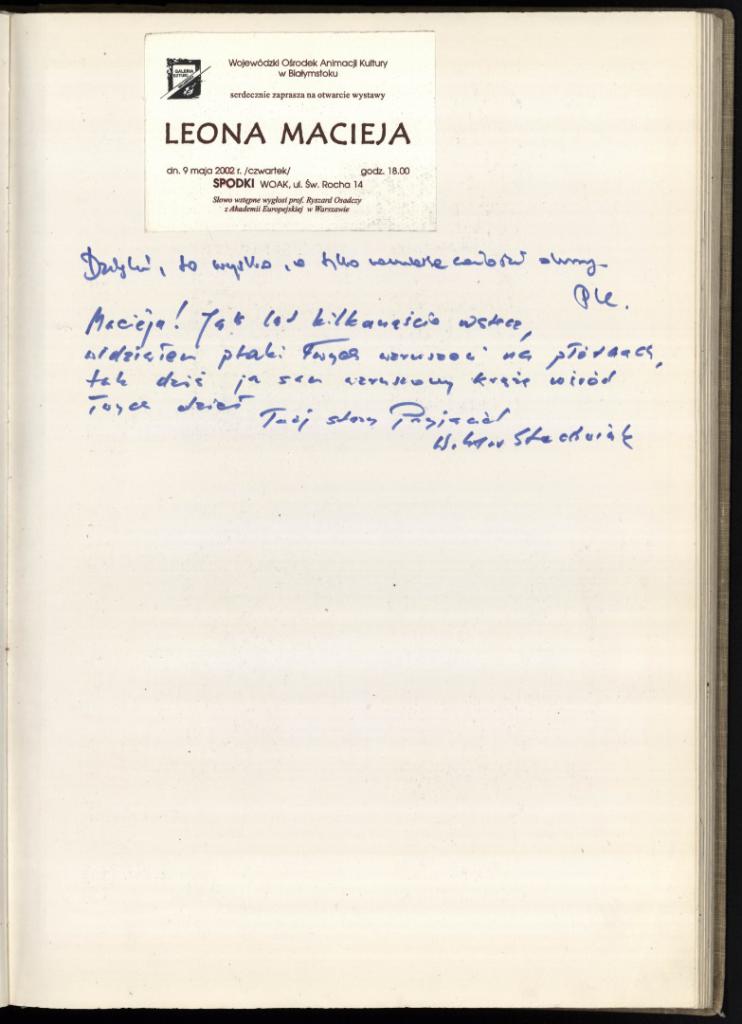 GALERIA
Wojewódzki Ośrodek Animacji Kultury
w Białymstoku
serdecznie zaprasza na otwarcie wystawy
LEONA MACIEJA
dn. 9 maja 2002 r. /czwartek/ godz. 18.00
SPODKI WOAK, ul. Św. Rocha 14
Słowo wstępne wygłosi prof. Ryszard Osadczy
z Akademii Europejskiej w Warszawie
to wszystko, a tylko
Macieja! Jak lat kilkanaście wstecz,
widziałem ptaki Twych wzruszeń na płótnach,
tak dziś ja sam wzruszony krążę wśród
Twych dzieł
Twój stary Przyjaciel